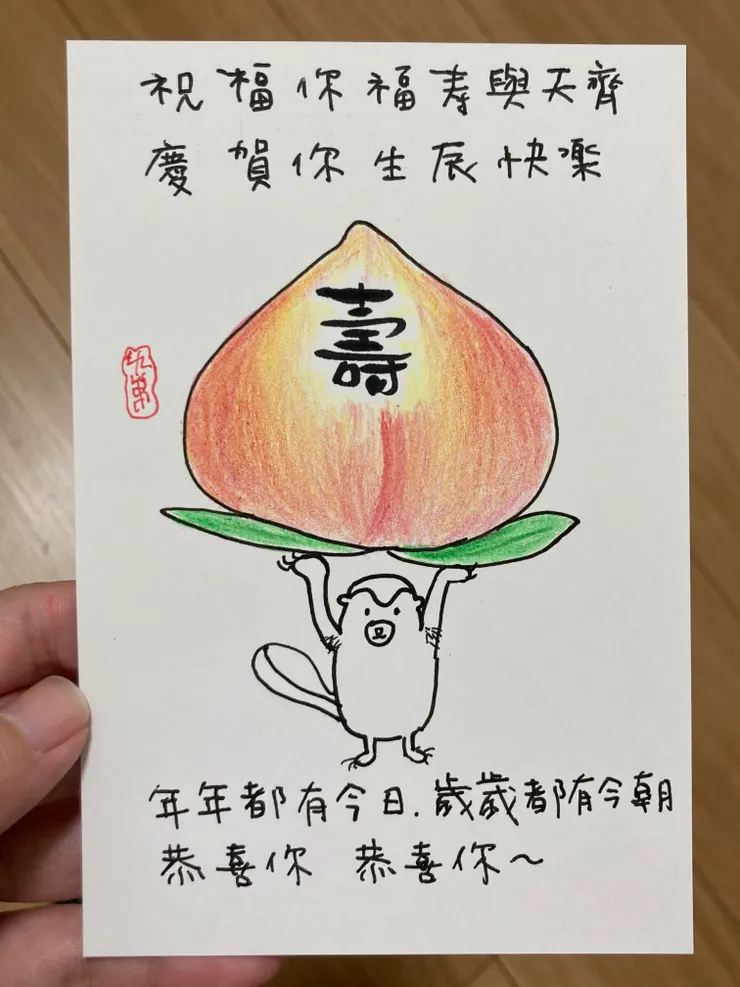 祝福你福寿與天齊
慶賀你生辰快樂
壽
年年都有今日.歲歲都有今朝
恭喜你 恭喜你～